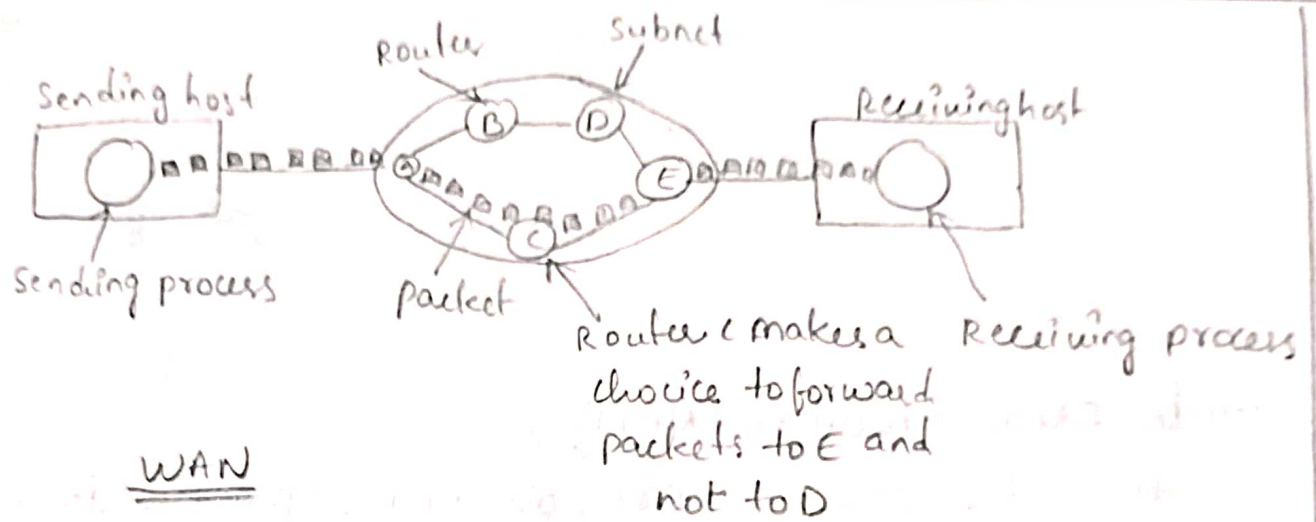 Router
Subnet
Sending host
Receiving host
B
D
A
E
C
Sending process
packet
Router C makes a
choice to forward
packets to E and
not to D
Receiving process
WAN